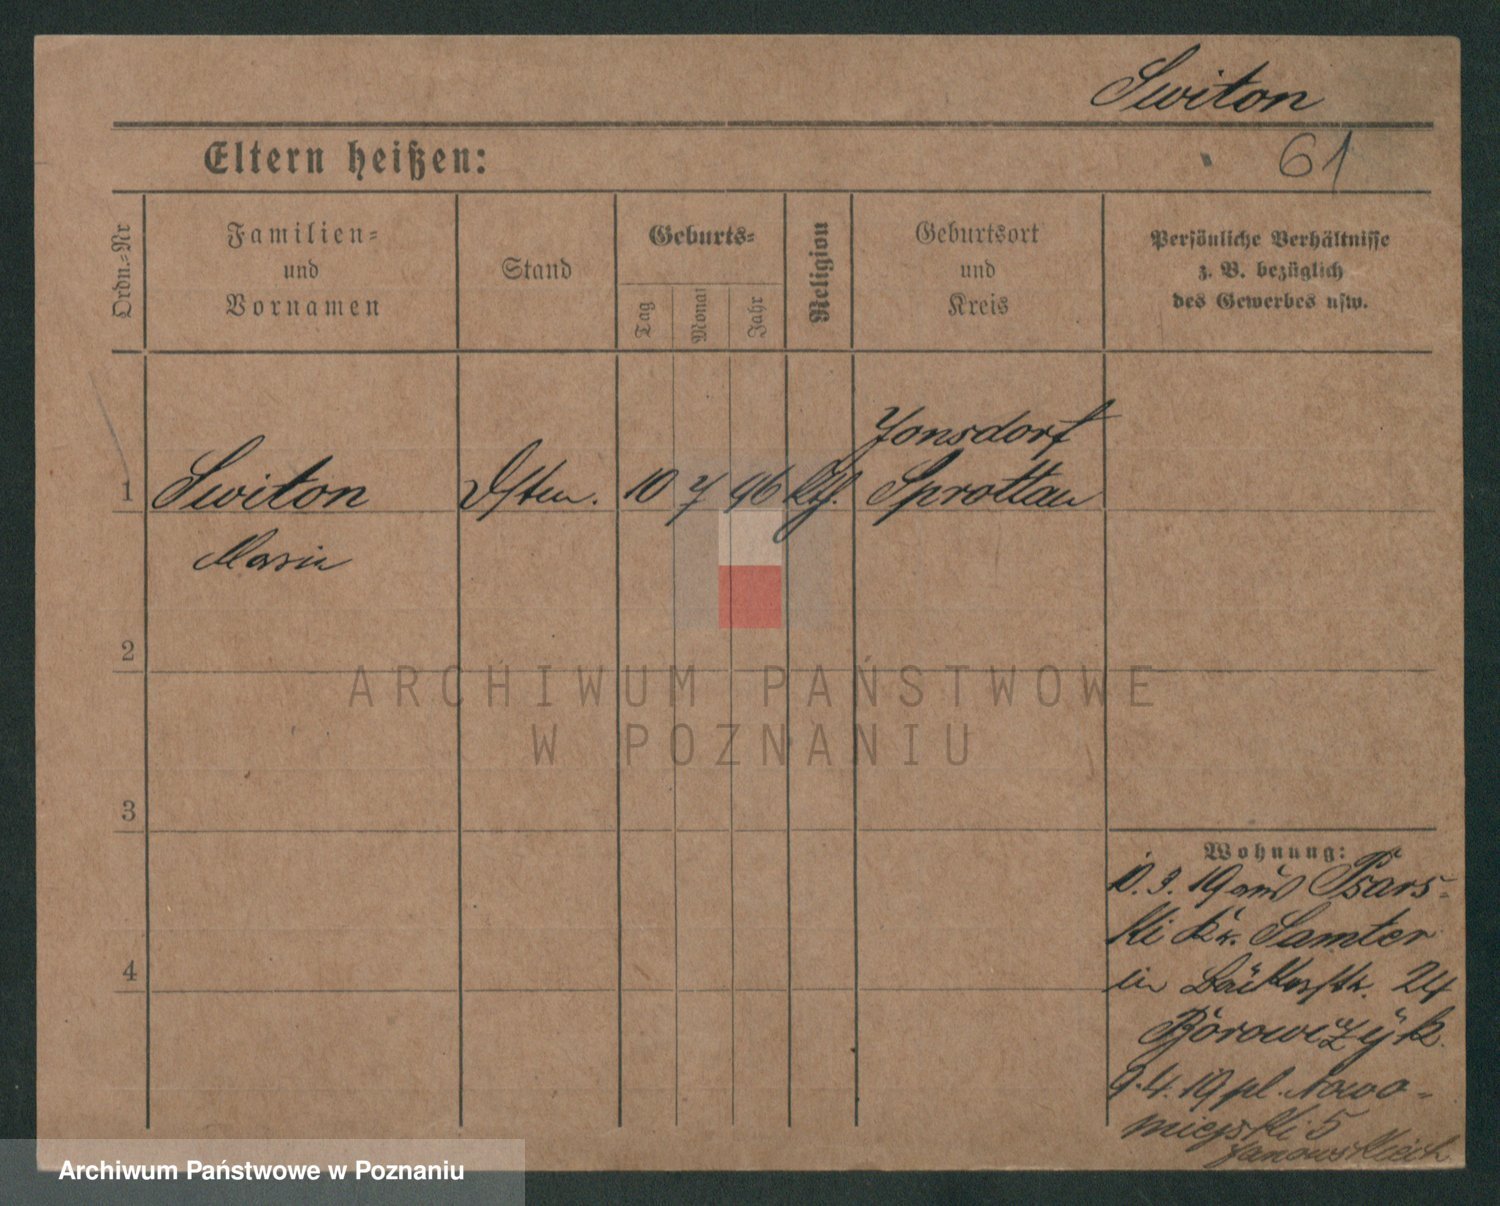 Switon
61
Eltern heißen:
Ordn.-Nr
Familien-
und
Vornamen
Stand
Geburts-
Tag
Monat
Jahr
Religion
Geburtsort
und
Kreis
Persönliche Verhältnisse
z. B. bezüglich
des Gewerbes usw.
Jonsdorf
1 Switon 10 7 96 kth. Sprottau
Maria
2
3
4
Wohnung:
10. 3. 19 aus Psars-
ki Kr. Samter
in Bäckerstr. 24
Borowizÿk
9. 4. 19 pl. Nowo-
miejski 5
ARCHIWUM PAŃSTWOWE
W POZNANIU
Archiwum Państwowe w Poznaniu